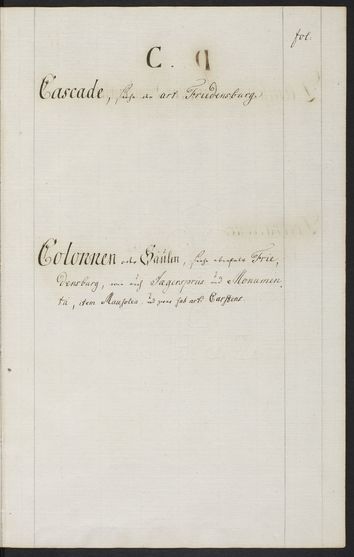 fol.
C.
Cascade, siehe den art Friedensburg.
Colonnen oder Säulen, siehe ebenfals Frie,
densburg, wie auch Jægerspriis und Monumen,
ta, item Mausolea, und art Carstens